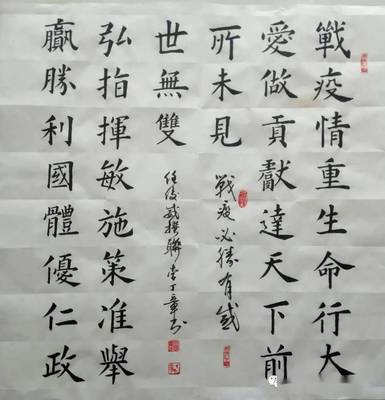 戰疫情重生命行大
愛做貢獻達天下前
所未見
戰疫必勝有感
贏勝利國體優仁政
弘指揮敏施策准舉
世無雙
任俊 撰聯 丁章书